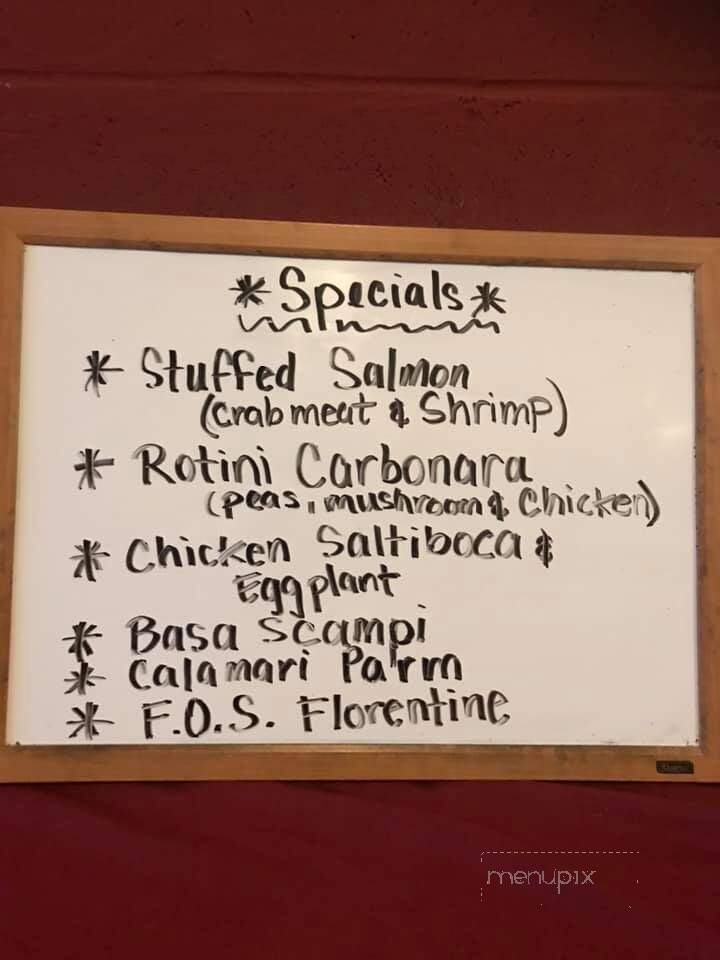 *Specials*
* Stuffed Salmon
(Crab meat & Shrimp)
* Rotini Carbonara
(peas, mushroom & Chicken)
* Chicken Saltiboca &
Eggplant
* Basa Scampi
* Calamari Parm
* F.O.S. Florentine
menupix